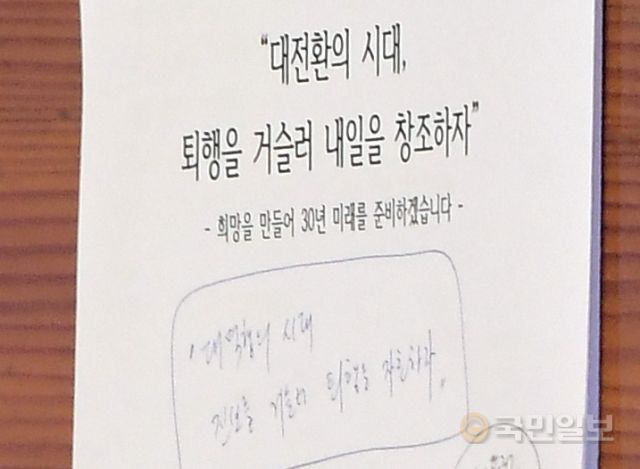 “대전환의 시대,
퇴행을 거슬러 내일을 창조하자”
- 희망을 만들어 30년 미래를 준비하겠습니다 -
"대역행의 시대
진보를 거슬러 퇴행을 자한하라"
국민일보